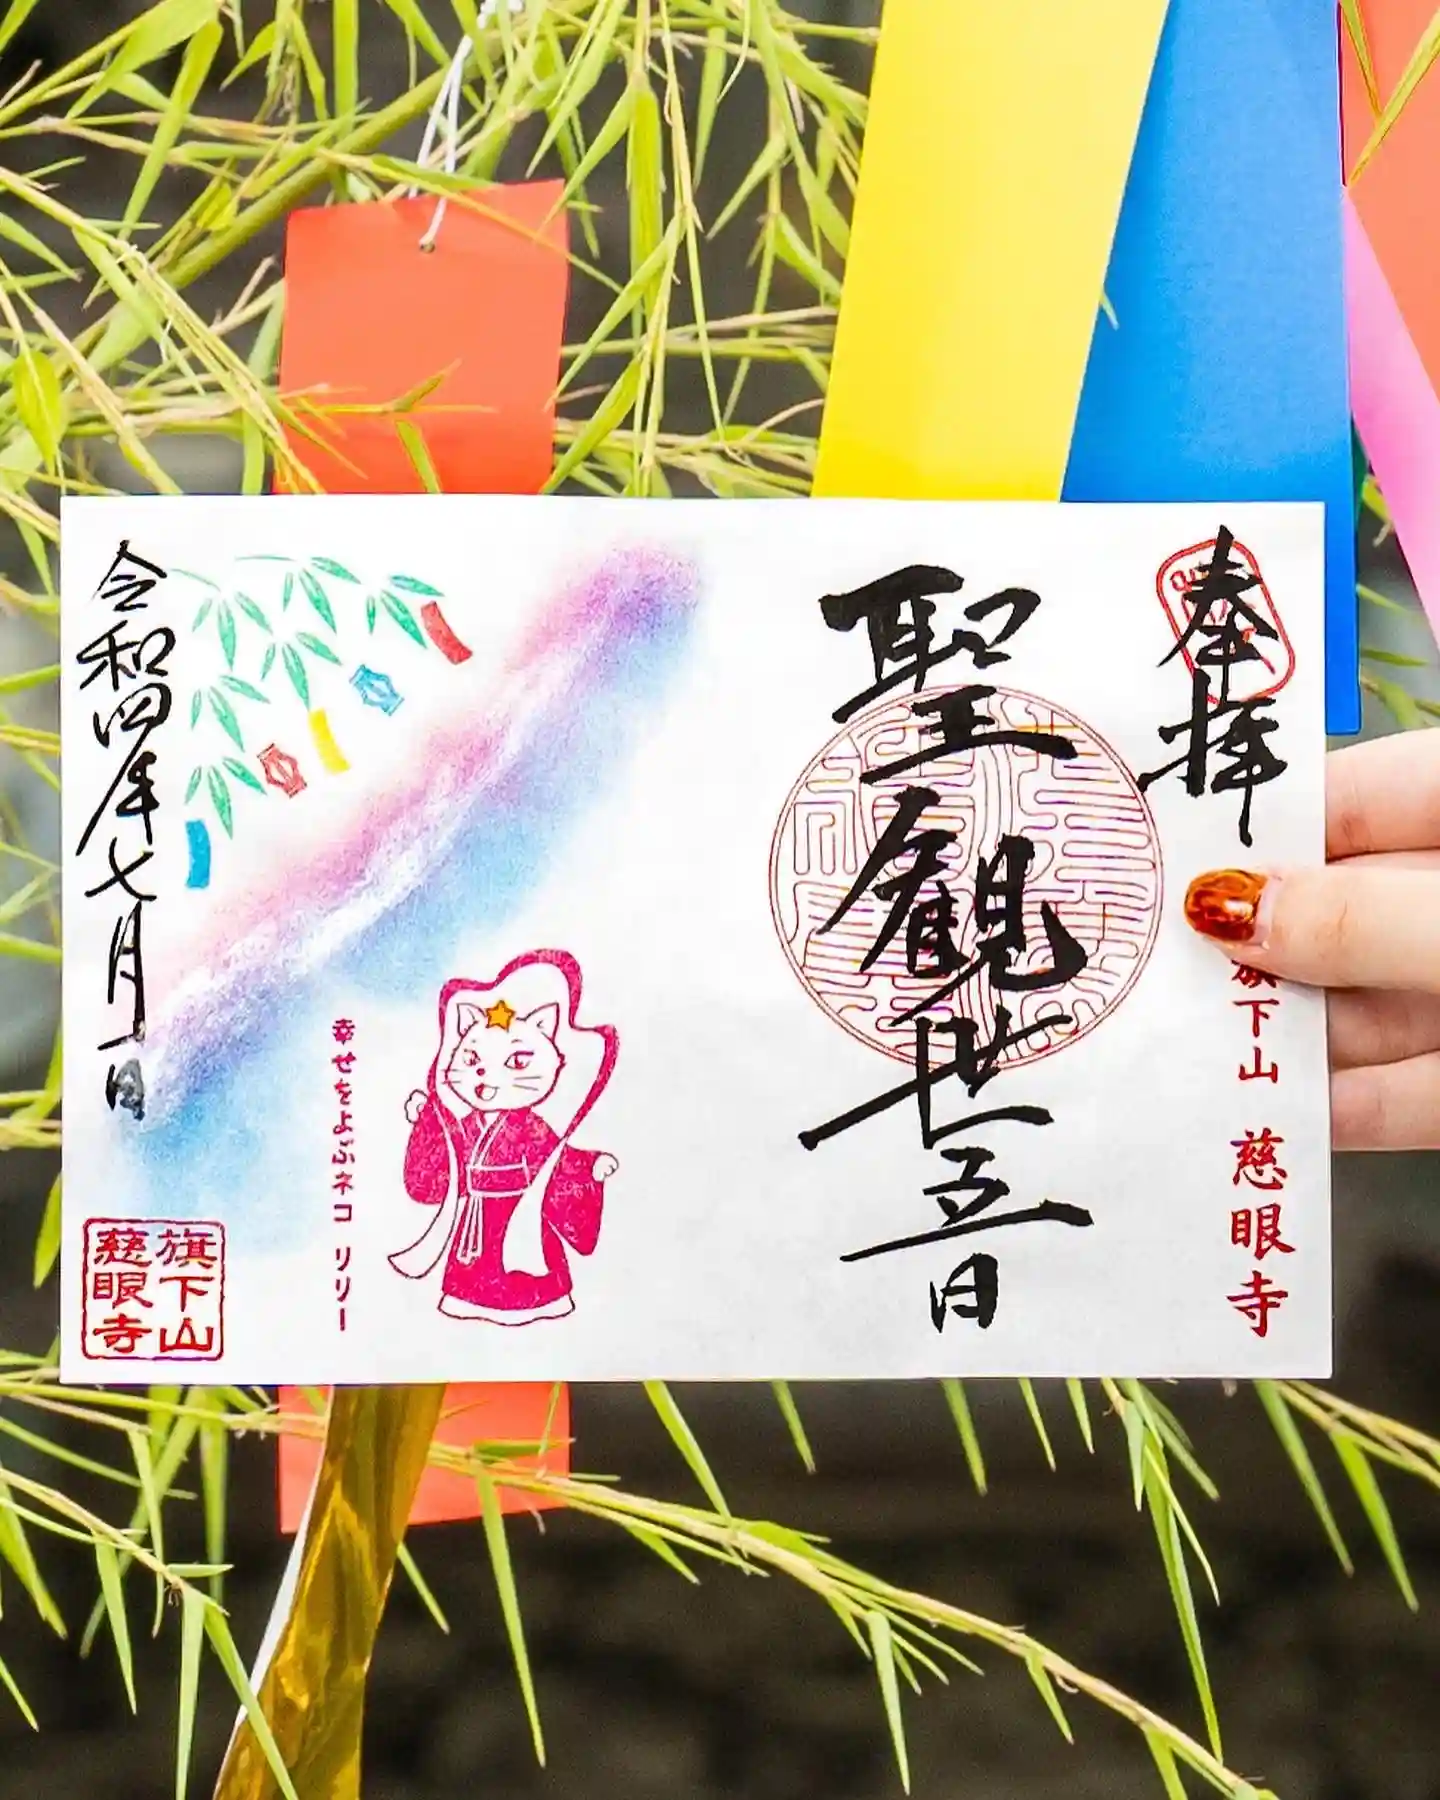 奉拝
聖観世音
旗下山 慈眼寺
幸せをよぶネコ リリー
令和四年七月一日
旗下山
慈眼寺